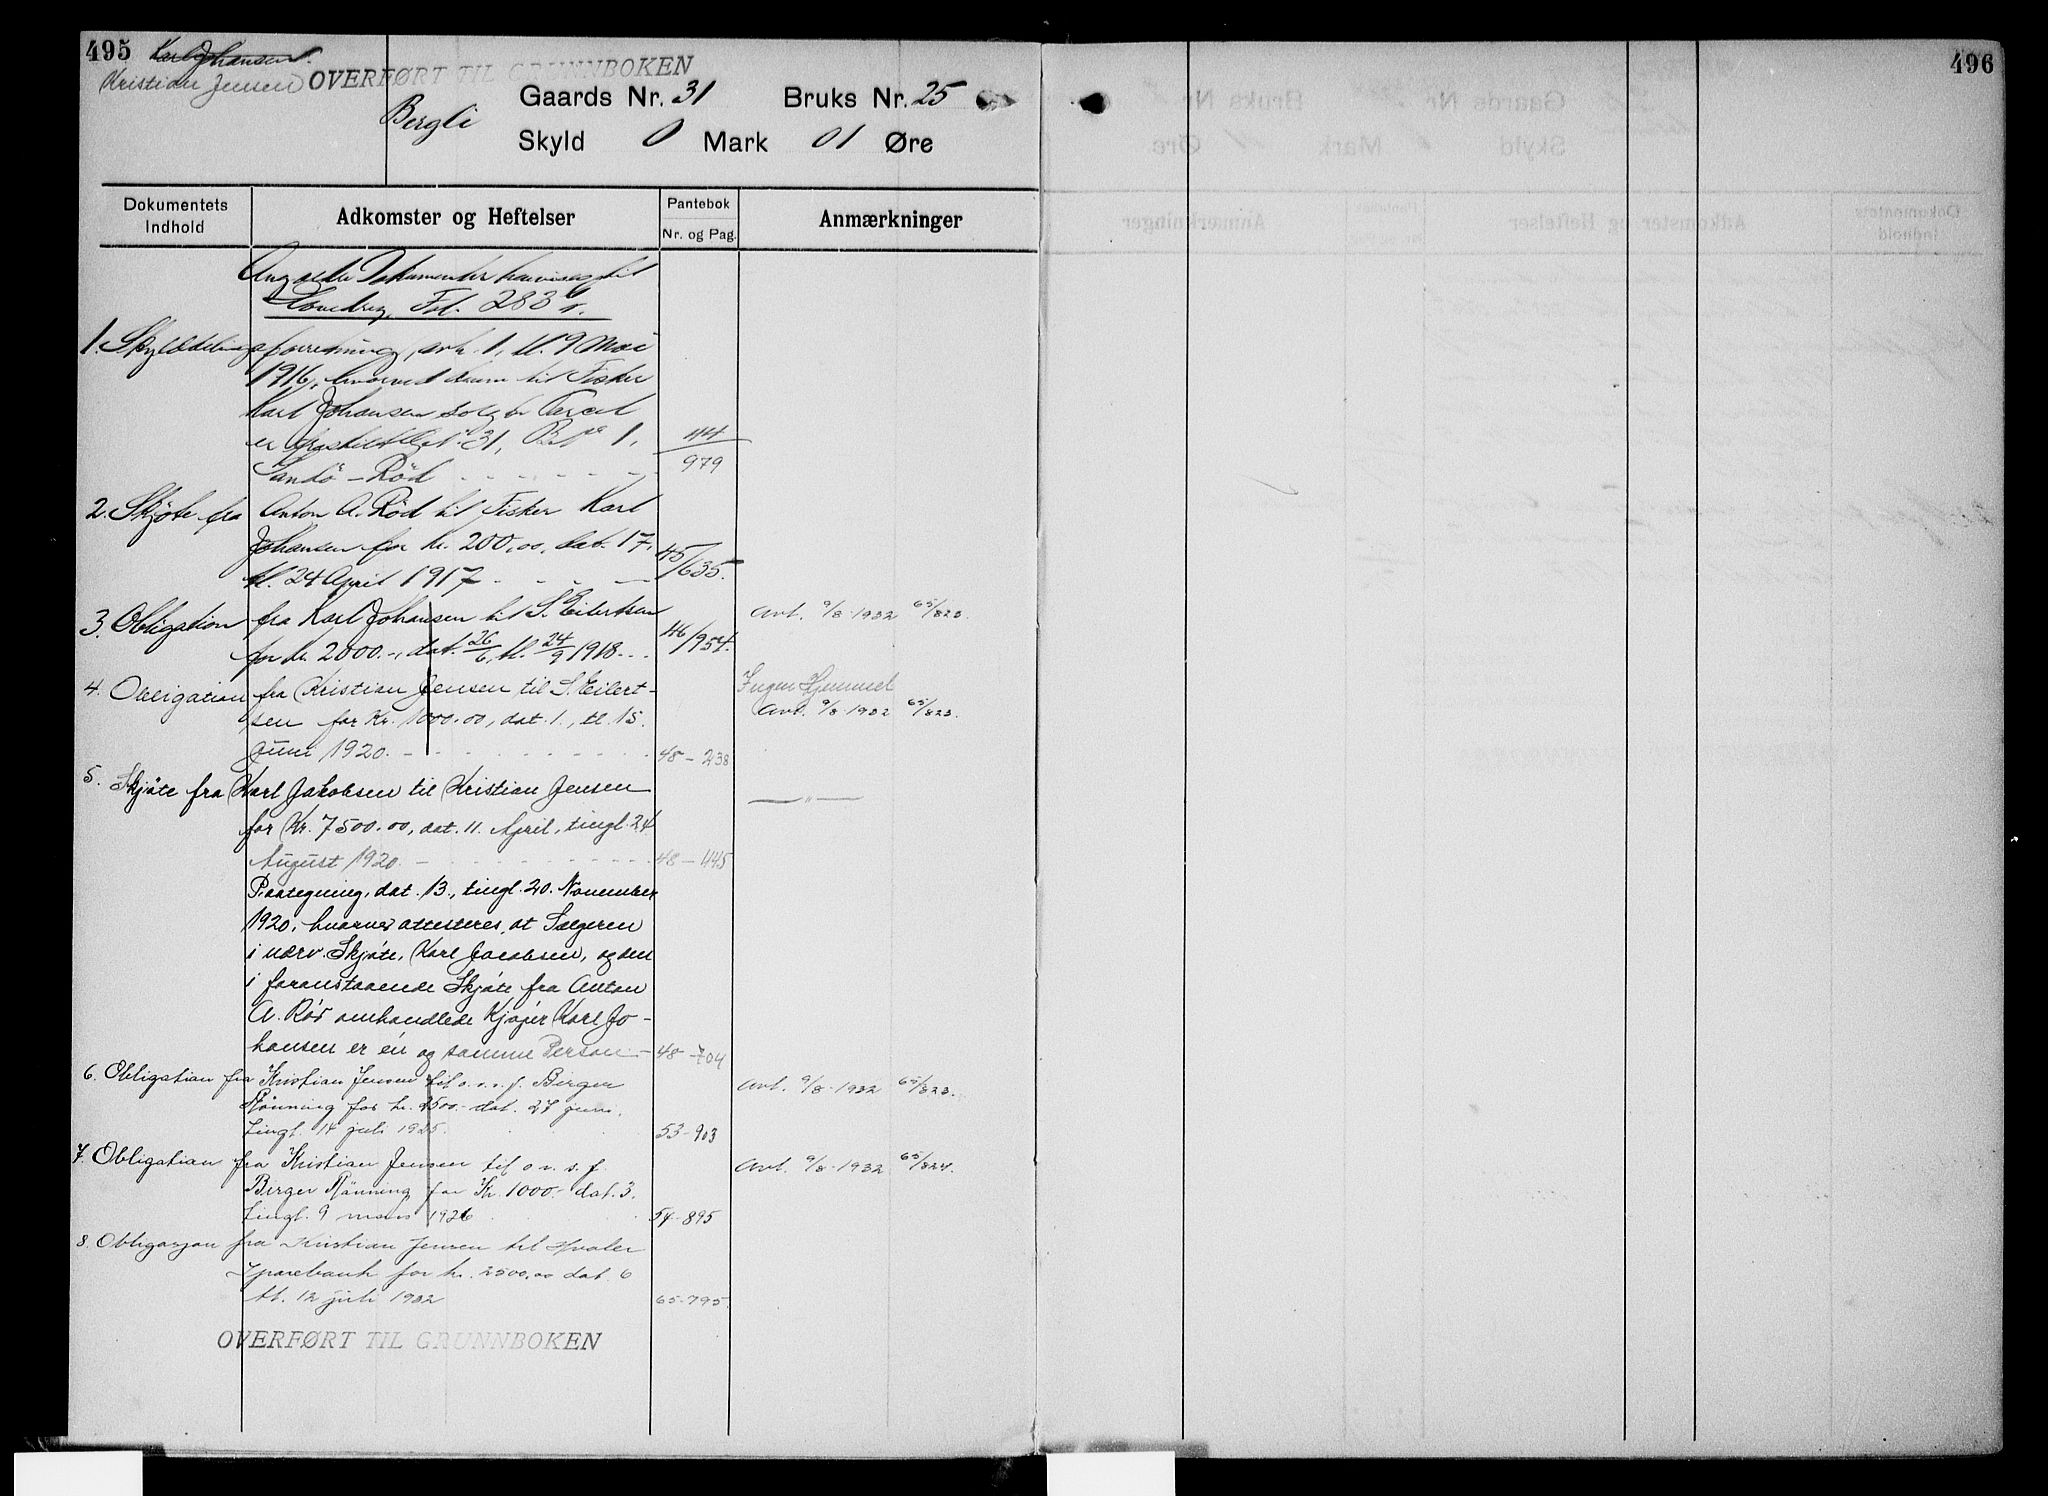 495 Karl Johansen.
Kristian Jensen OVERFØRT TIL GRUNNBOKEN
496
Gaards Nr. 31 Bruks Nr. 25
Bergli
Skyld 0 Mark 01 Øre
Dokumentets Indhold
Adkomster og Heftelser
Pantebok
Nr. og Pag.
Anmærkninger
Ang. ældre Dokumenter henvises til
Hovedbog, Fol. 283
1. Skylddelingsforretning, avh. 1, tl. 9 Mai
1916, hvorved denne til Fisker
Karl Johansen solgte Parcel
er fraskilt G.Nr. 31, B.Nr. 1,
Sandö - Röd 44/979
2. Skjøte fra Anton A. Röd til Fisker Karl
Johansen for kr. 200,00, dat. 17,
tl. 24 April 1917 45/635.
3. Obligation fra Karl Johansen til S. Eilertsen
for kr. 2000.-, dat. 26/6, tl. 24/9 1918 46/954.
Avl. 9/8-1932 65/823.
4. Obligation fra Kristian Jensen til S. Eilert-
sen for Kr. 1000.00, dat. 1., tl. 15.
Juni 1920. 48 - 238
Ingen Hjemmel
Avl. 9/8-1932 65/823.
5. Skjöte fra Karl Jakobsen til Kristian Jensen
for Kr. 7500.00, dat. 11. April, tingl. 24
August 1920. 48 - 445
— " —
Paategning, dat. 13., tingl. 20. November
1920, hvorved attesteres, at Sælgeren
i nærv. Skjøte, Karl Jacobsen, og den
i foranstaaende Skjøte fra Anton
A. Röd omhandlede Kjøper Karl Jo-
hansen er én og samme Person 48 - 704
6. Obligation fra Kristian Jensen til o.v.s.f. Birger
Rönning for kr. 2500.- dat. 27 juni,
tingl. 14 juli 1925. 53-903
Avl. 9/8-1932 65/823.
7. Obligation fra Kristian Jensen til o.v.s.f.
Birger Rönning for Kr. 1000.- dat. 3.
tingl. 9 mars 1926 54-895
Avl. 9/8-1932 65/824.
8. Obligasjon fra Kristian Jensen til Hvaler
Sparebank for kr. 2500,00 dat. 6
tl. 12 juli 1932 65-795.
OVERFØRT TIL GRUNNBOKEN